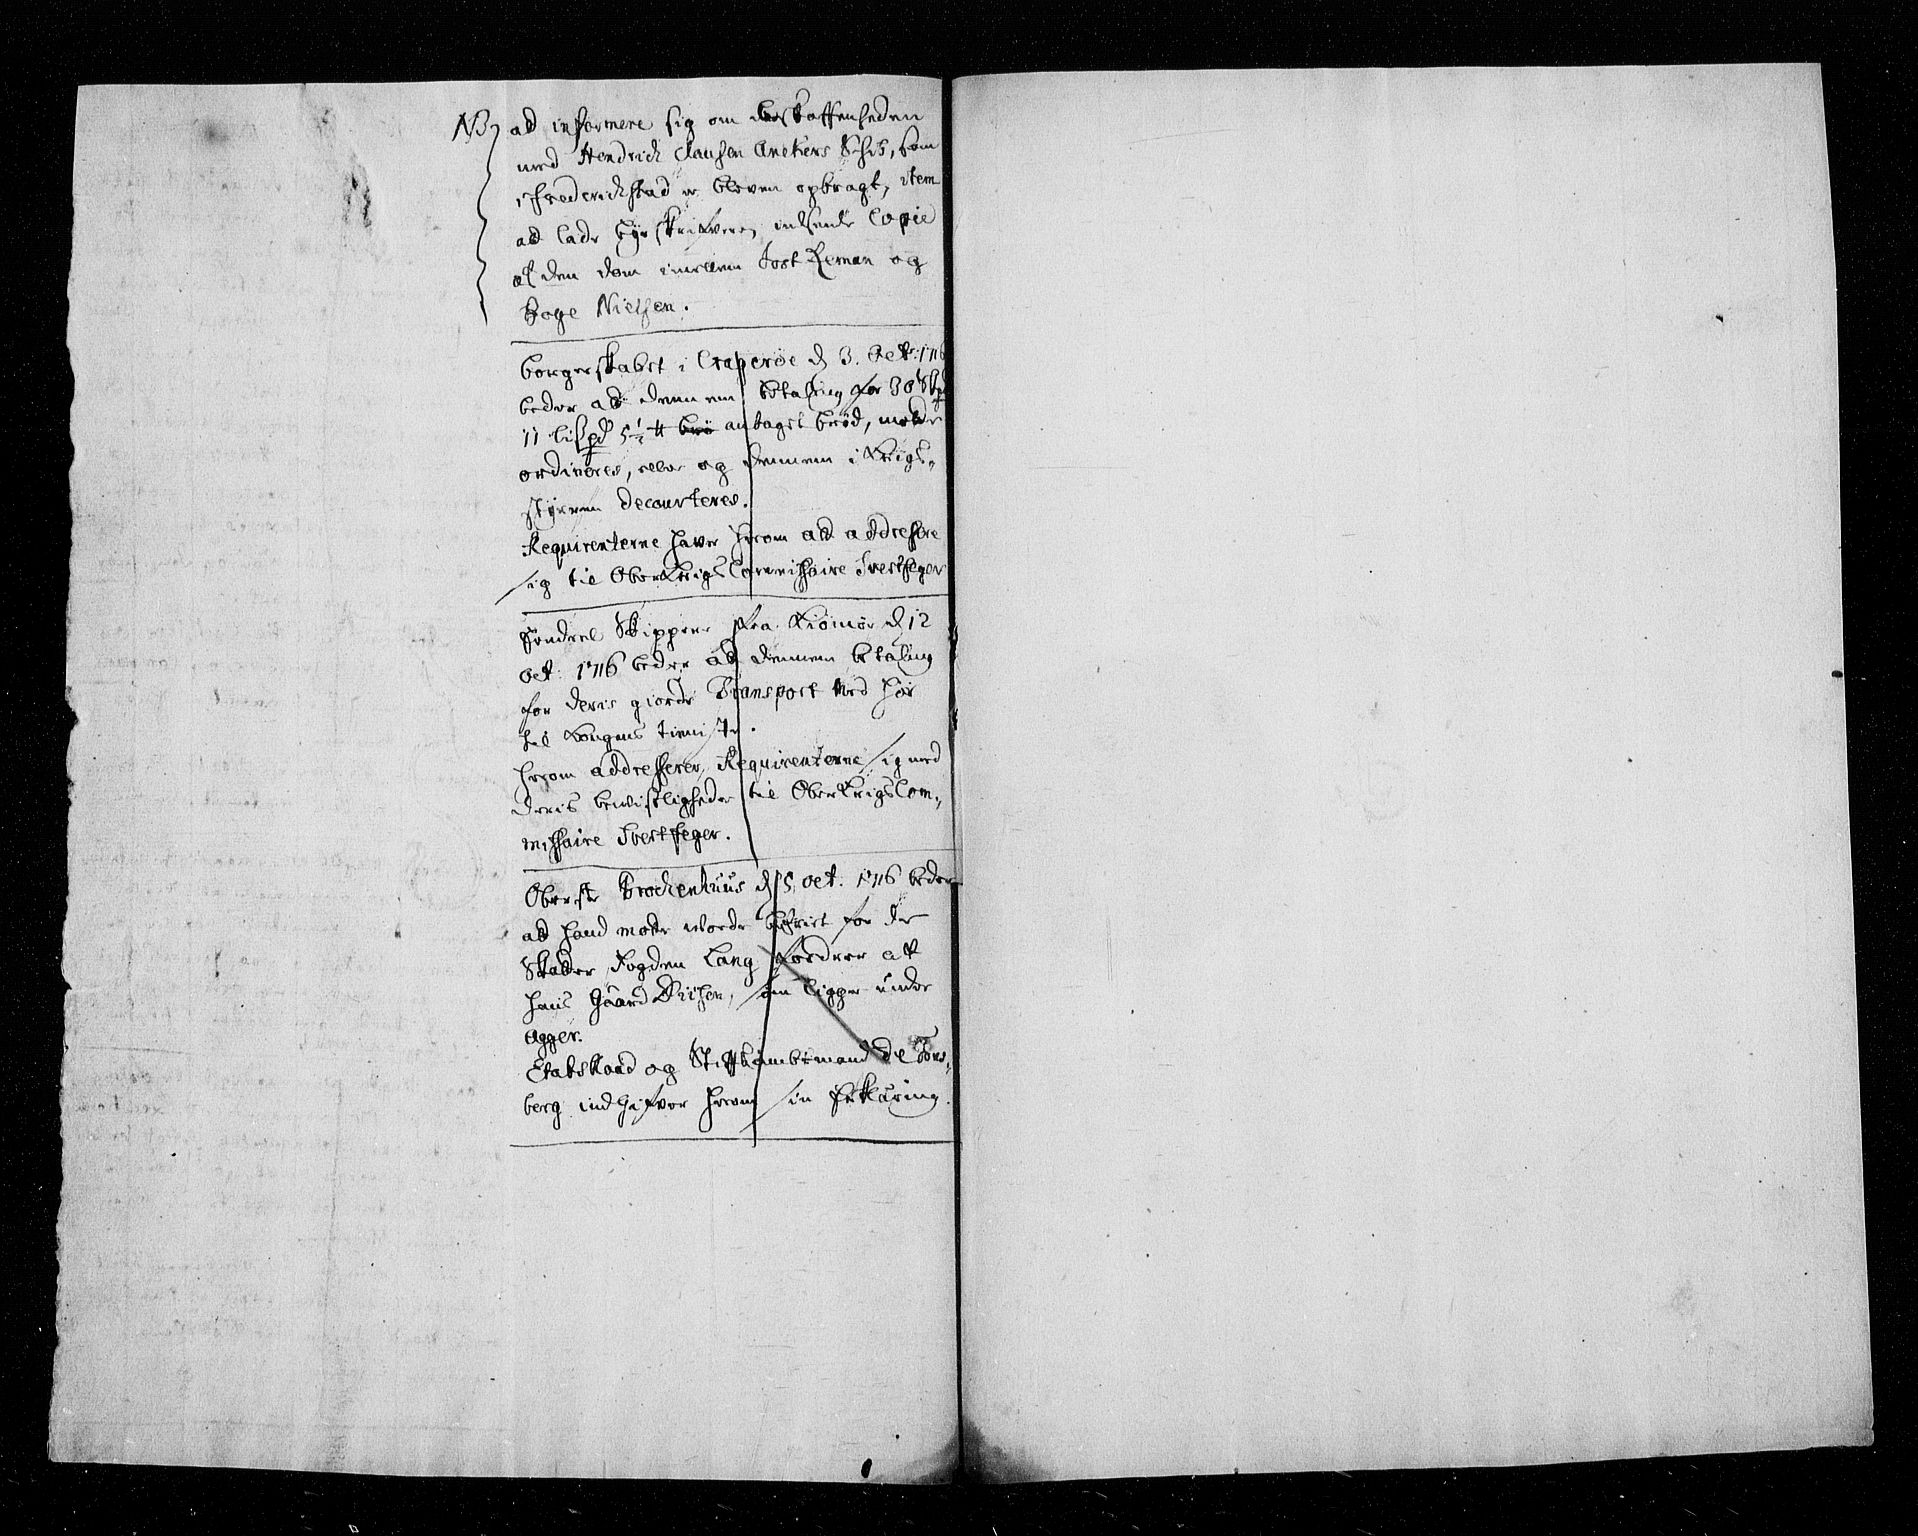 NB, ad informere sig om beskaffenheden
med Hendrich Clausen Ankers Schib, som
i Frederichstad er bleven opbragt, item
ad lade byeskrifveren indsende Copie
af den dom imellem Jost Leman og
Boye Nielsen.
borgerskabet i Craperøe d 3. Oct: 1716
beder ad dennem betaling for 30 Skp
11 lispd 5½ tt antaget brød, motte
ordineres, eller og dennem i Krigs-
styren decourteres.
Requirenterne haver herom ad addressere
sig til OberKrigsCommissaire Svertfeger
Endeel Skippere fra Kiømøe d 12
oct: 1716 beder ad dennem betaling
for deris giorde Transport med høe
til Kongens tieniste.
herom addresserer Requirenterne sig med
deris bewistligheder til OberKrigsCom-
missaire Svertfeger.
Oberste Brochenhuus d 5. oct: 1716 beder
ad hand motte worde befriet for de
Skatter Fogden Lang fordrer aff
hans Gaard, som ligger under
Agger.
Etatsraad og Stifftambtmand de Tons-
berg indhifver herom sin Erklæring.